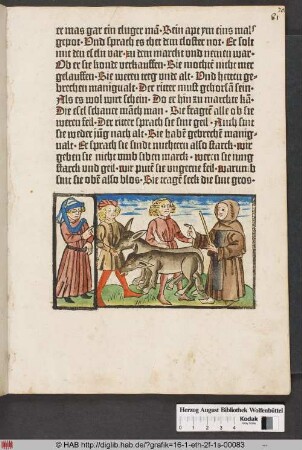 er was gar ein cluger man · Sein apt ym eins mals
gepot · Vnd sprach es thet dem closter not · Er solt
mit den eseln dar · zu dem marckt vnd nemen war ·
Ob er sie konde verkauffen · Sie mochtē nicht mer
gelauffen · Sie weren treg vnd alt · Vnd hetten ge
brechen manigualt · Der ritter must gehorsā sein ·
Als es wol wirt schein · Do er hin zu marckte kā ·
Die esel schauet māch man · Sie fragtē alle ob sie
weren feil · Der ritter sprach sie sint geil · Auch sint
sie weder jūg noch alt · Sie habē gebrechē manig-
ualt · Er sprach sie sindt nicht
geben sie nicht vmb siben marck · weren sie iung
starck vnd geil · wir putē sie vngerne feil · warūb
sint sie obē also blos · Sie tragē seck die sint gros ·
81
Herzog August Bibliothek Wolfenbüttel
Kodak
© HAB http://diglib.hab.de/?grafik=16-1-eth-2f-1s-00083